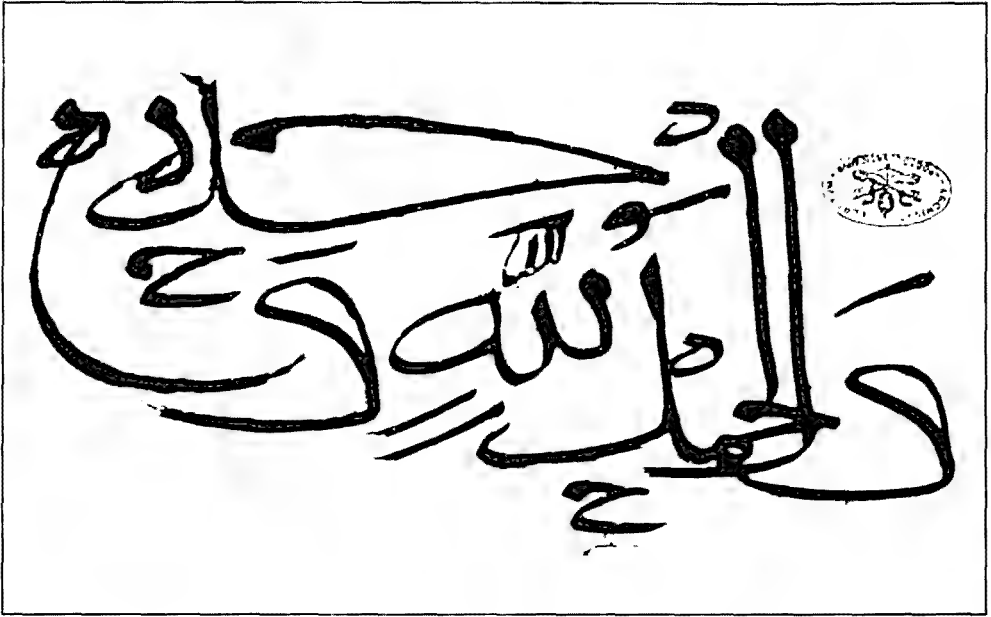 والحمد لله وحده